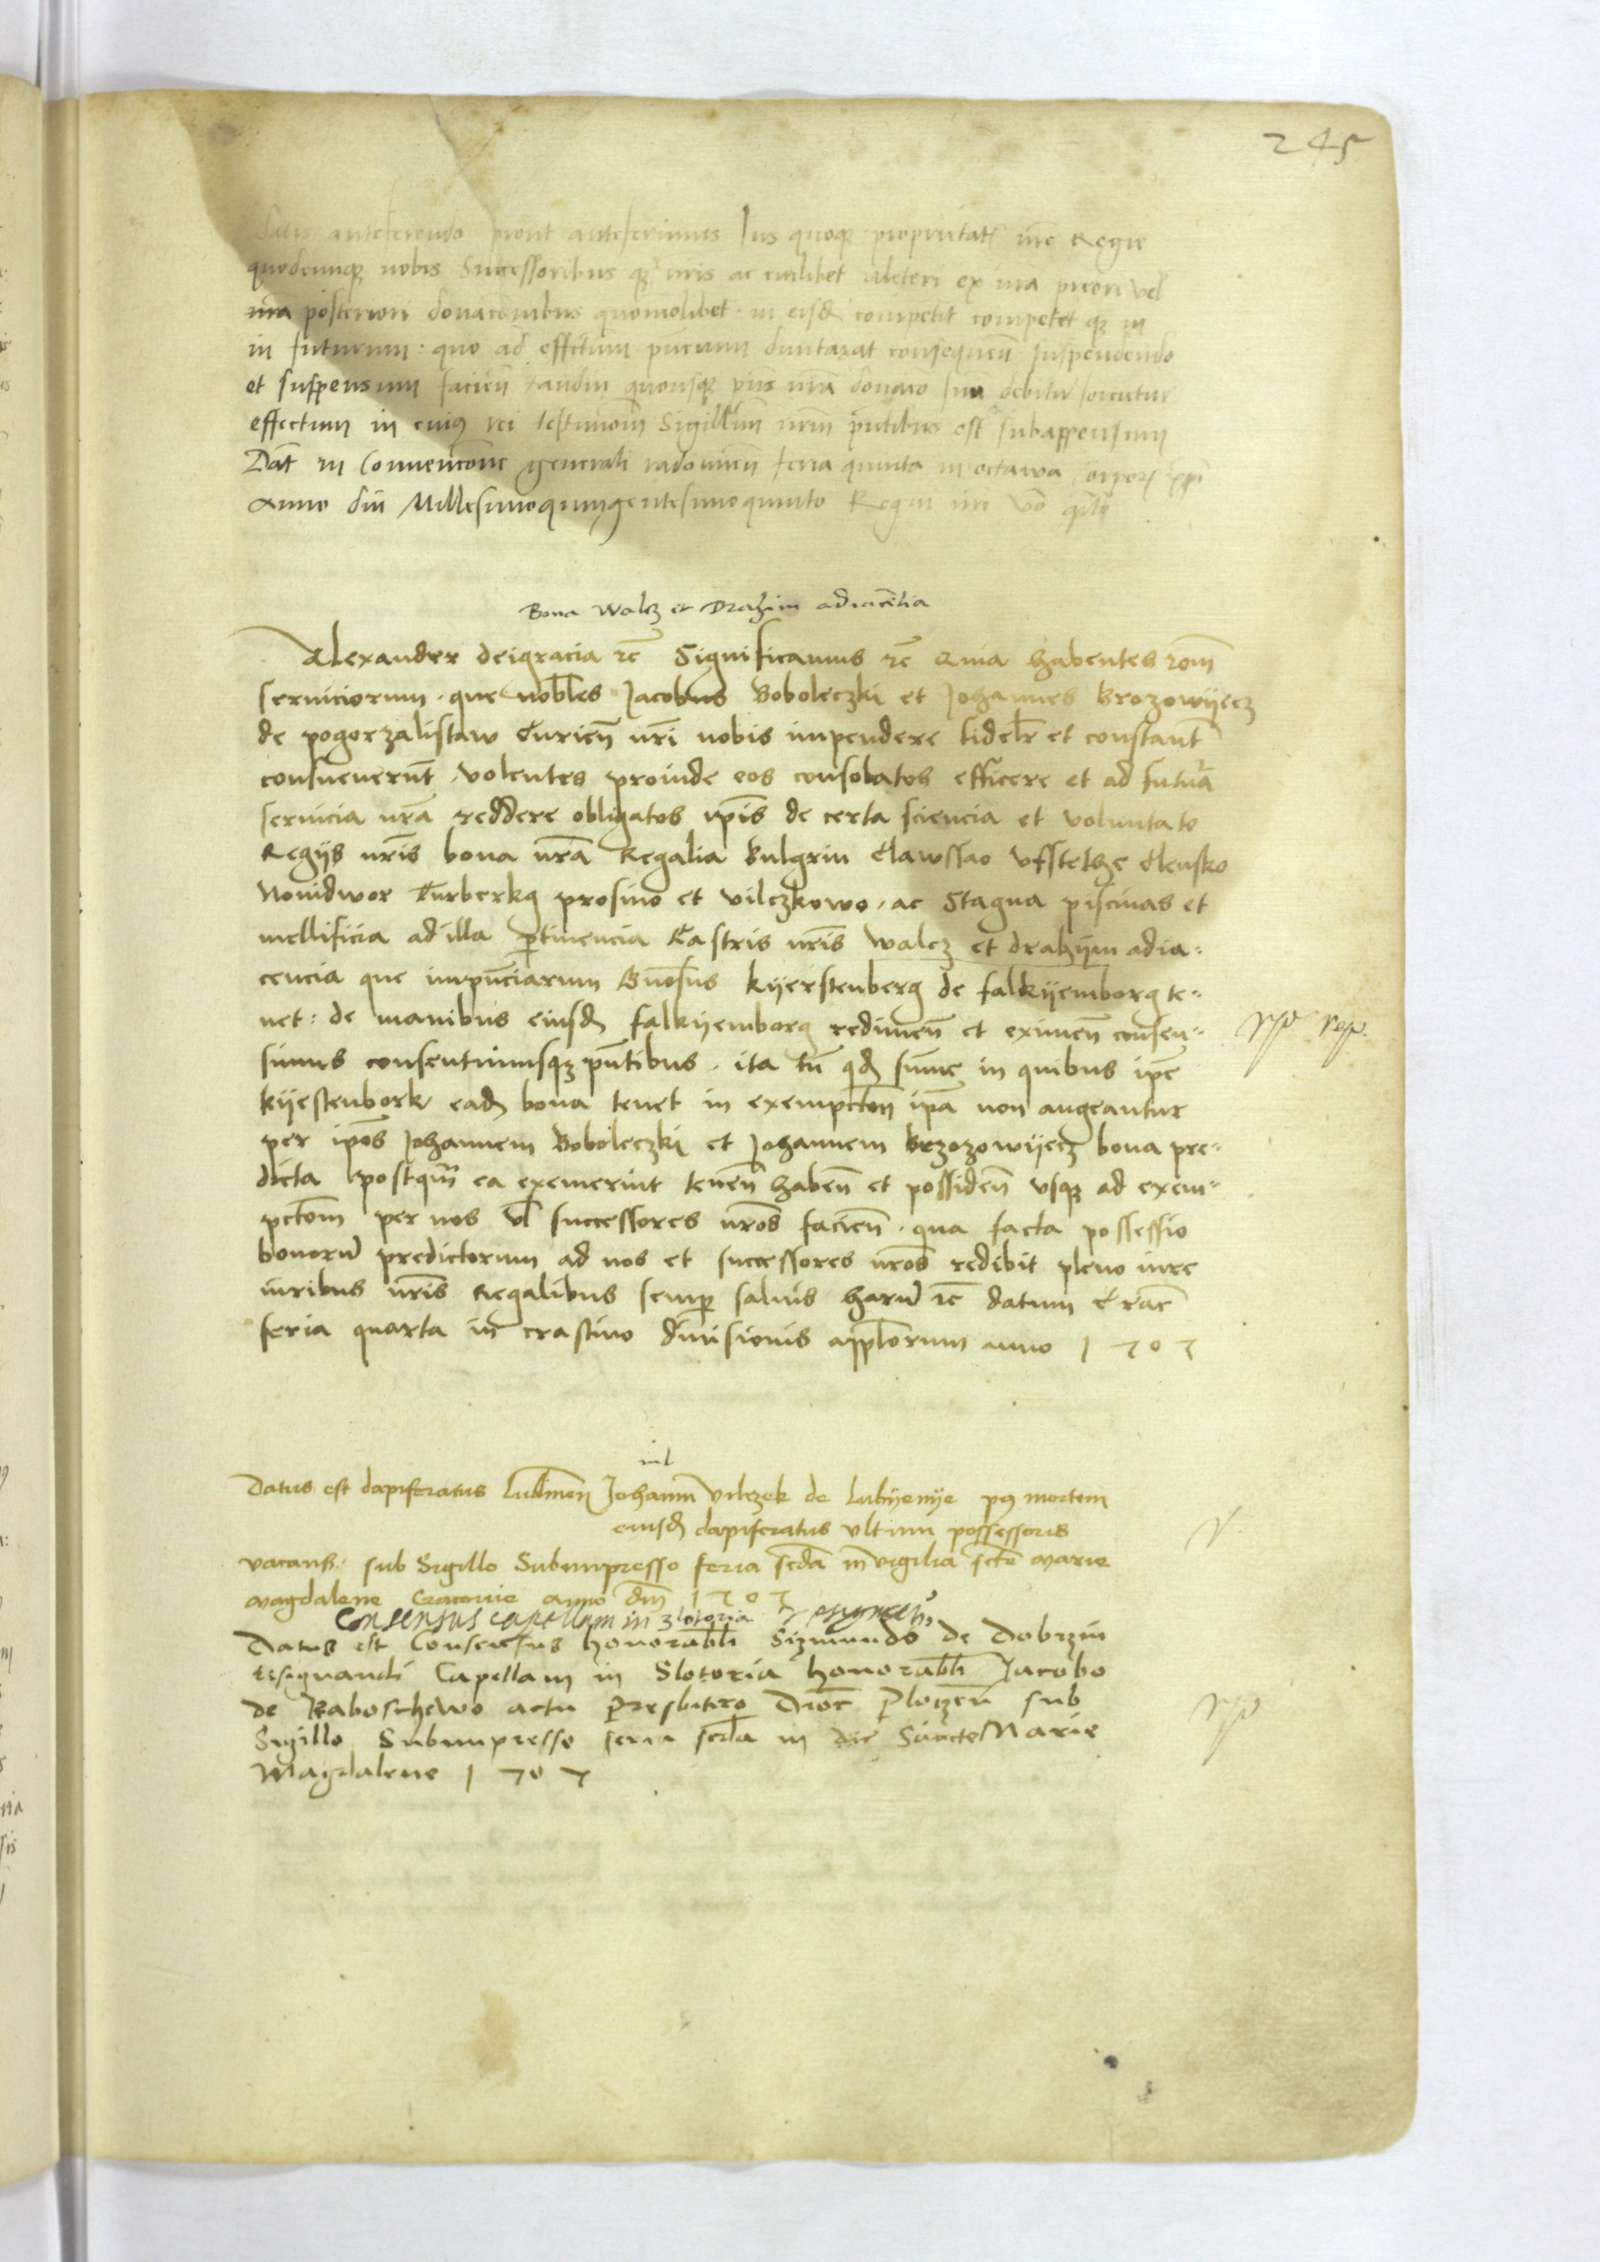 245
anteferendo prout anteferimus Ius quoque proprietat nre Regie
quodcunque nobis Successoribus que nris ac cuilibet alteri ex nra priori vel
nra posteriori donacionibus quomolibet in eisd competit competet que in
in futurum: quo ad effectum duntaxat consequen suspendendo
et suspensum facien tandiu quousque nra donacio sua debitu sorciatur
effectum in cuius rei testimoni Sigillum nrm pntibus est subappensum
Dat in Convencone generali radomien feria quinta in octava corporis xpi
Anno dni Millesimoquingentesimoquinto Regni nri vo
Bona Walcz et Drahim adiacentia
Alexander deigracia rc Significamus rc Quia habentes rom
serviciorum. que nobles Jacobus Boboleczki et Johannes Brozowyecz
de pogorzalistaw Curien nri nobis impendere fidelr et constant
consueverunt. volentes proinde eos consolatos efficere et ad futura
servicia nra reddere obligatos ipis de certa sciencia et voluntate
Regijs nris bona nra Regalia Bulgrin Clawssao Vfstethe Clensko
Novidwor Turberkg prosino et vilczkowo. ac Stagna piscinas et
mellificia ad illa ptinencia Castris nris walcz et drahym adia-
cencia que impnciarum Gnosus kyerstenberg de falkyemborg te-
net: de manibus eiusd falkyemborg redimen et eximen consen-
simus consentimusque pntibus. ita tn qd sume in quibus ipe
kyestenbork ead bona tenet in exempcton ipa non augeantur
per ipos Johannem Boboleczki et Johannem Brzozowyecz bona pre-
dicta postqm ea exemerint tenen haben et possiden vsque ad exem-
pctom per nos vl successores nros facien. qua facta possessio
bonorum predictorum ad nos et successores nros redibit pleno iure
iuribus nris Regalibus semp salvis harum rc datum Crac
feria quarta in crastino divisionis applorum anno 1505
nil
Datus est dapiferatus Lublinen Johanni Vilczek de Lubyenye post mortem
eiusd dapiferatus vltimi possessoris
vacans. sub Sigillo Subimpresso feria scda in vigilia scte Marie
Magdalene Cracovie anno dni 1505
Consensus capellam in Zlotoria resignandi
Datus est Consensus honorabli Sizmundo de Dobrzin
resignandi Capellam in Slotoria honorabli Jacobo
de Raboschewo actu Presbitero Dioc Ploczen sub
Sigillo Subimpresso feria scda in die Sancte Marie
Magdalene 1505